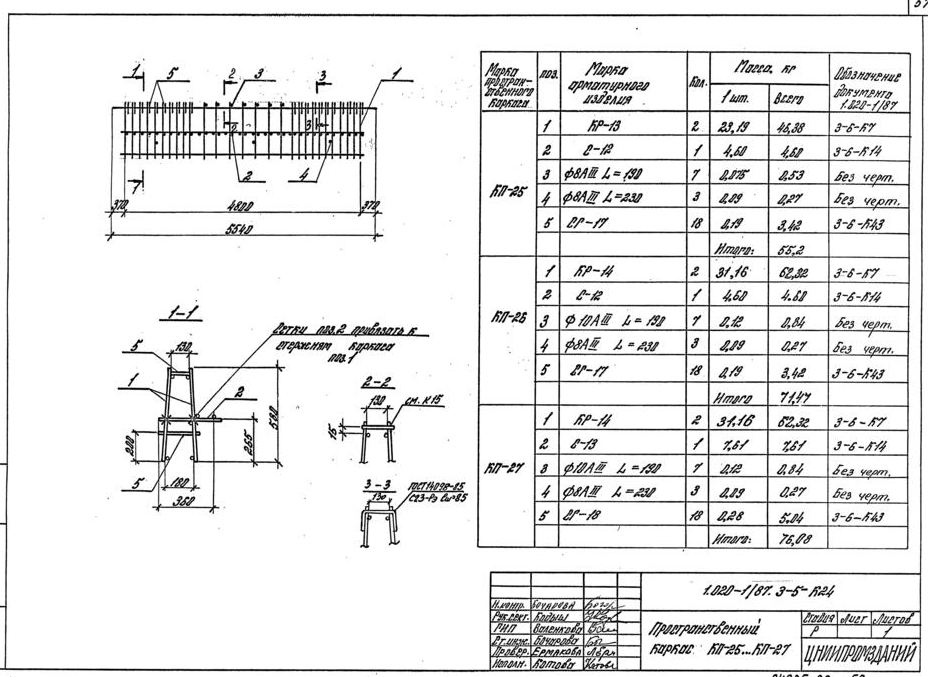 1 5 2 3 3 1
2 3
1 2 4
370 4800 370
5540
1-1
130
5
Сетки поз.2 привязать к
стержням каркаса
поз.1
1 2
200 265 580
5
180
360
2-2
130 см. К15
15
3-3 ГОСТ14098-85
130
Марка пространственного каркаса
поз.
Марка арматурного изделия
Кол.
Масса, кг
1 шт. Всего
Обозначение документа 1.020-1/87
КП-25
1 КР-13 2 23,19 46,38 3-6-К7
2 С-12 1 4,60 4,60 3-6-К14
3 ф8АIII L=190 7 0,075 0,53 Без черт.
4 ф8АIII L=230 3 0,09 0,27 Без черт.
5 СГ-17 18 0,19 3,42 3-6-К43
Итого: 55,2
КП-26
1 КР-14 2 31,16 62,32 3-6-К7
2 С-12 1 4.60 4.60 3-6-К14
3 ф10АIII L=190 7 0,12 0,84 Без черт.
4 ф8АIII L=230 3 0,09 0,27 Без черт.
5 СГ-17 18 0,19 3,42 3-6-К43
Итого 71,47
КП-27
1 КР-14 2 31,16 62,32 3-6-К7
2 С-13 1 7,61 7,61 3-6-К14
3 ф10АIII L=190 7 0,12 0,84 Без черт.
4 ф8АIII L=230 3 0,09 0,27 Без черт.
5 СГ-18 18 0,28 5,04 3-6-К43
Итого: 76,08
1.020-1/87. 3-5-К24
Н.контр. Бочарова
Рук.сект.
ГИП
Ст.инж. Бочарова
Провер. Ермакова
Исполн. Котова
Пространственный
каркас КП-25...КП-27
Стадия Лист Листов
Р 1
ЦНИИПРОМЗДАНИЙ